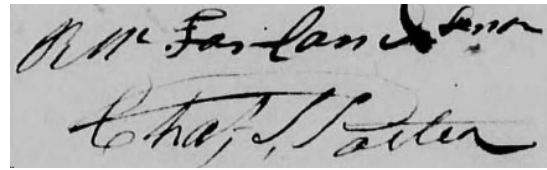 R Mc Farland
Chas. S. Porter